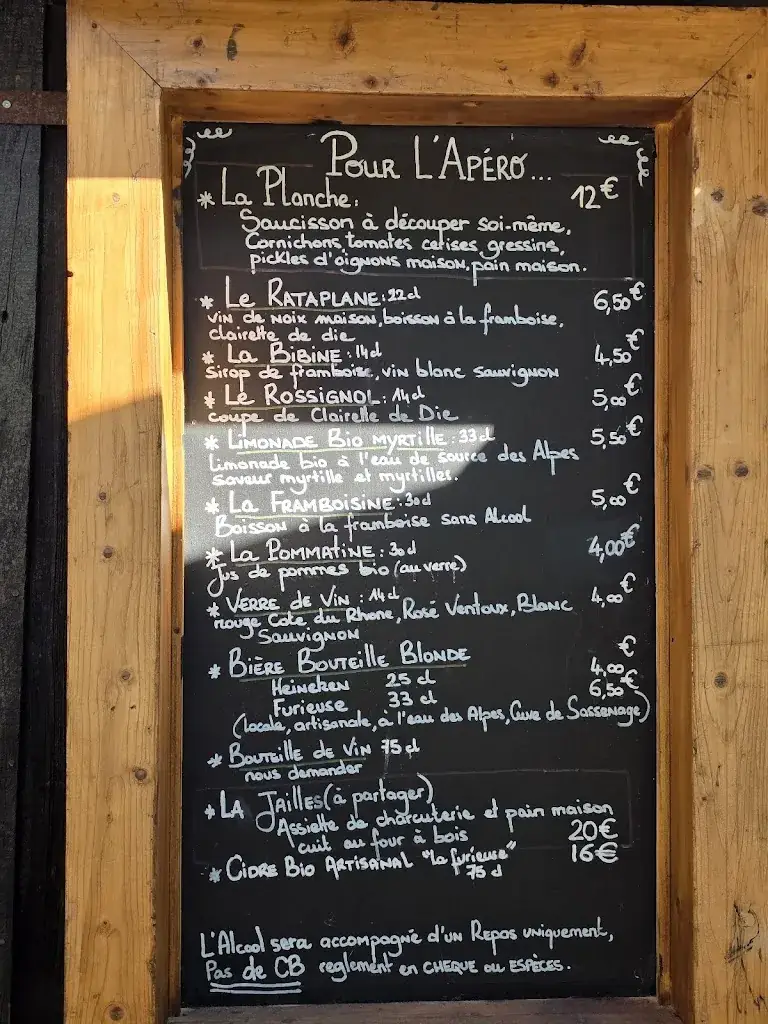 Pour L'Apéro...
* La Planche: 12€
Saucisson à découper soi-même,
Cornichons, tomates cerises, gressins,
pickles d'oignons maison, pain maison.
* Le Rataplane: 22cl 6,50€
vin de noix maison, boisson à la framboise,
clairette de die
* La Bibine: 14cl 4,50€
Sirop de framboise, vin blanc sauvignon
* Le Rossignol: 14cl 5,00€
coupe de Clairette de Die
* Limonade Bio myrtille: 33cl 5,50€
Limonade bio à l'eau de source des Alpes
saveur myrtille et myrtilles.
* La Framboisine: 30cl 5,00€
Boisson à la framboise sans Alcool
* La Pommatine: 30cl 4,00€
Jus de pommes bio (au verre)
* Verre de Vin: 14cl 4,00€
rouge Cote du Rhone, Rosé Ventoux, Blanc
Sauvignon
* Bière Bouteille Blonde
Heineken 25 cl 4,00€
Furieuse 33 cl 6,50€
(locale, artisanale, à l'eau des Alpes, Cuve de Sassenage)
* Bouteille de Vin 75 cl
nous demander
* La Jailles (à partager)
Assiette de charcuterie et pain maison
cuit au four à bois 20€
* Cidre Bio Artisanal "la furieuse" 16€
75 cl
L'Alcool sera accompagné d'un Repas uniquement,
Pas de CB reglement en cheque ou espèces.